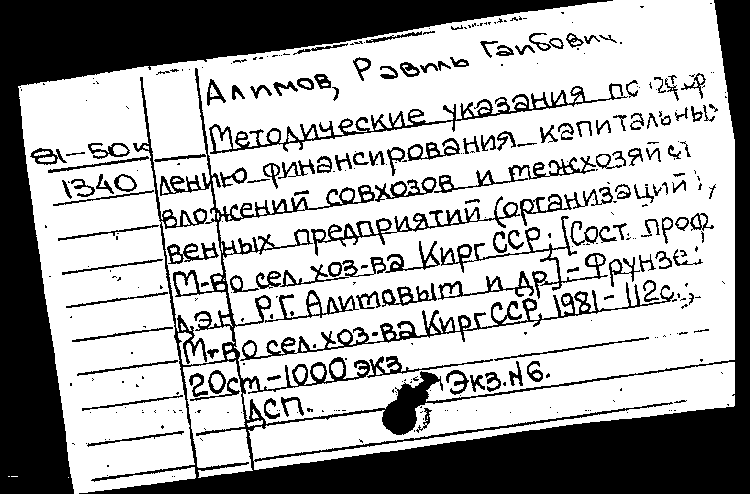 Алимов, Равиль Гаибович
Методические указания по
81-50к
1340
лению финансирования капитальных
вложений совхозов и межхозяйст
венных предприятий (организаций),
М-во сел. хоз-ва Кирг ССР; [Сост. проф.
д.э.н. Р.Г. Алимовым и др.] - Фрунзе:
М-во сел. хоз-ва Кирг ССР, 1981 - 112с.;
20см. - 1000 экз.
ДСП. Экз. №6.